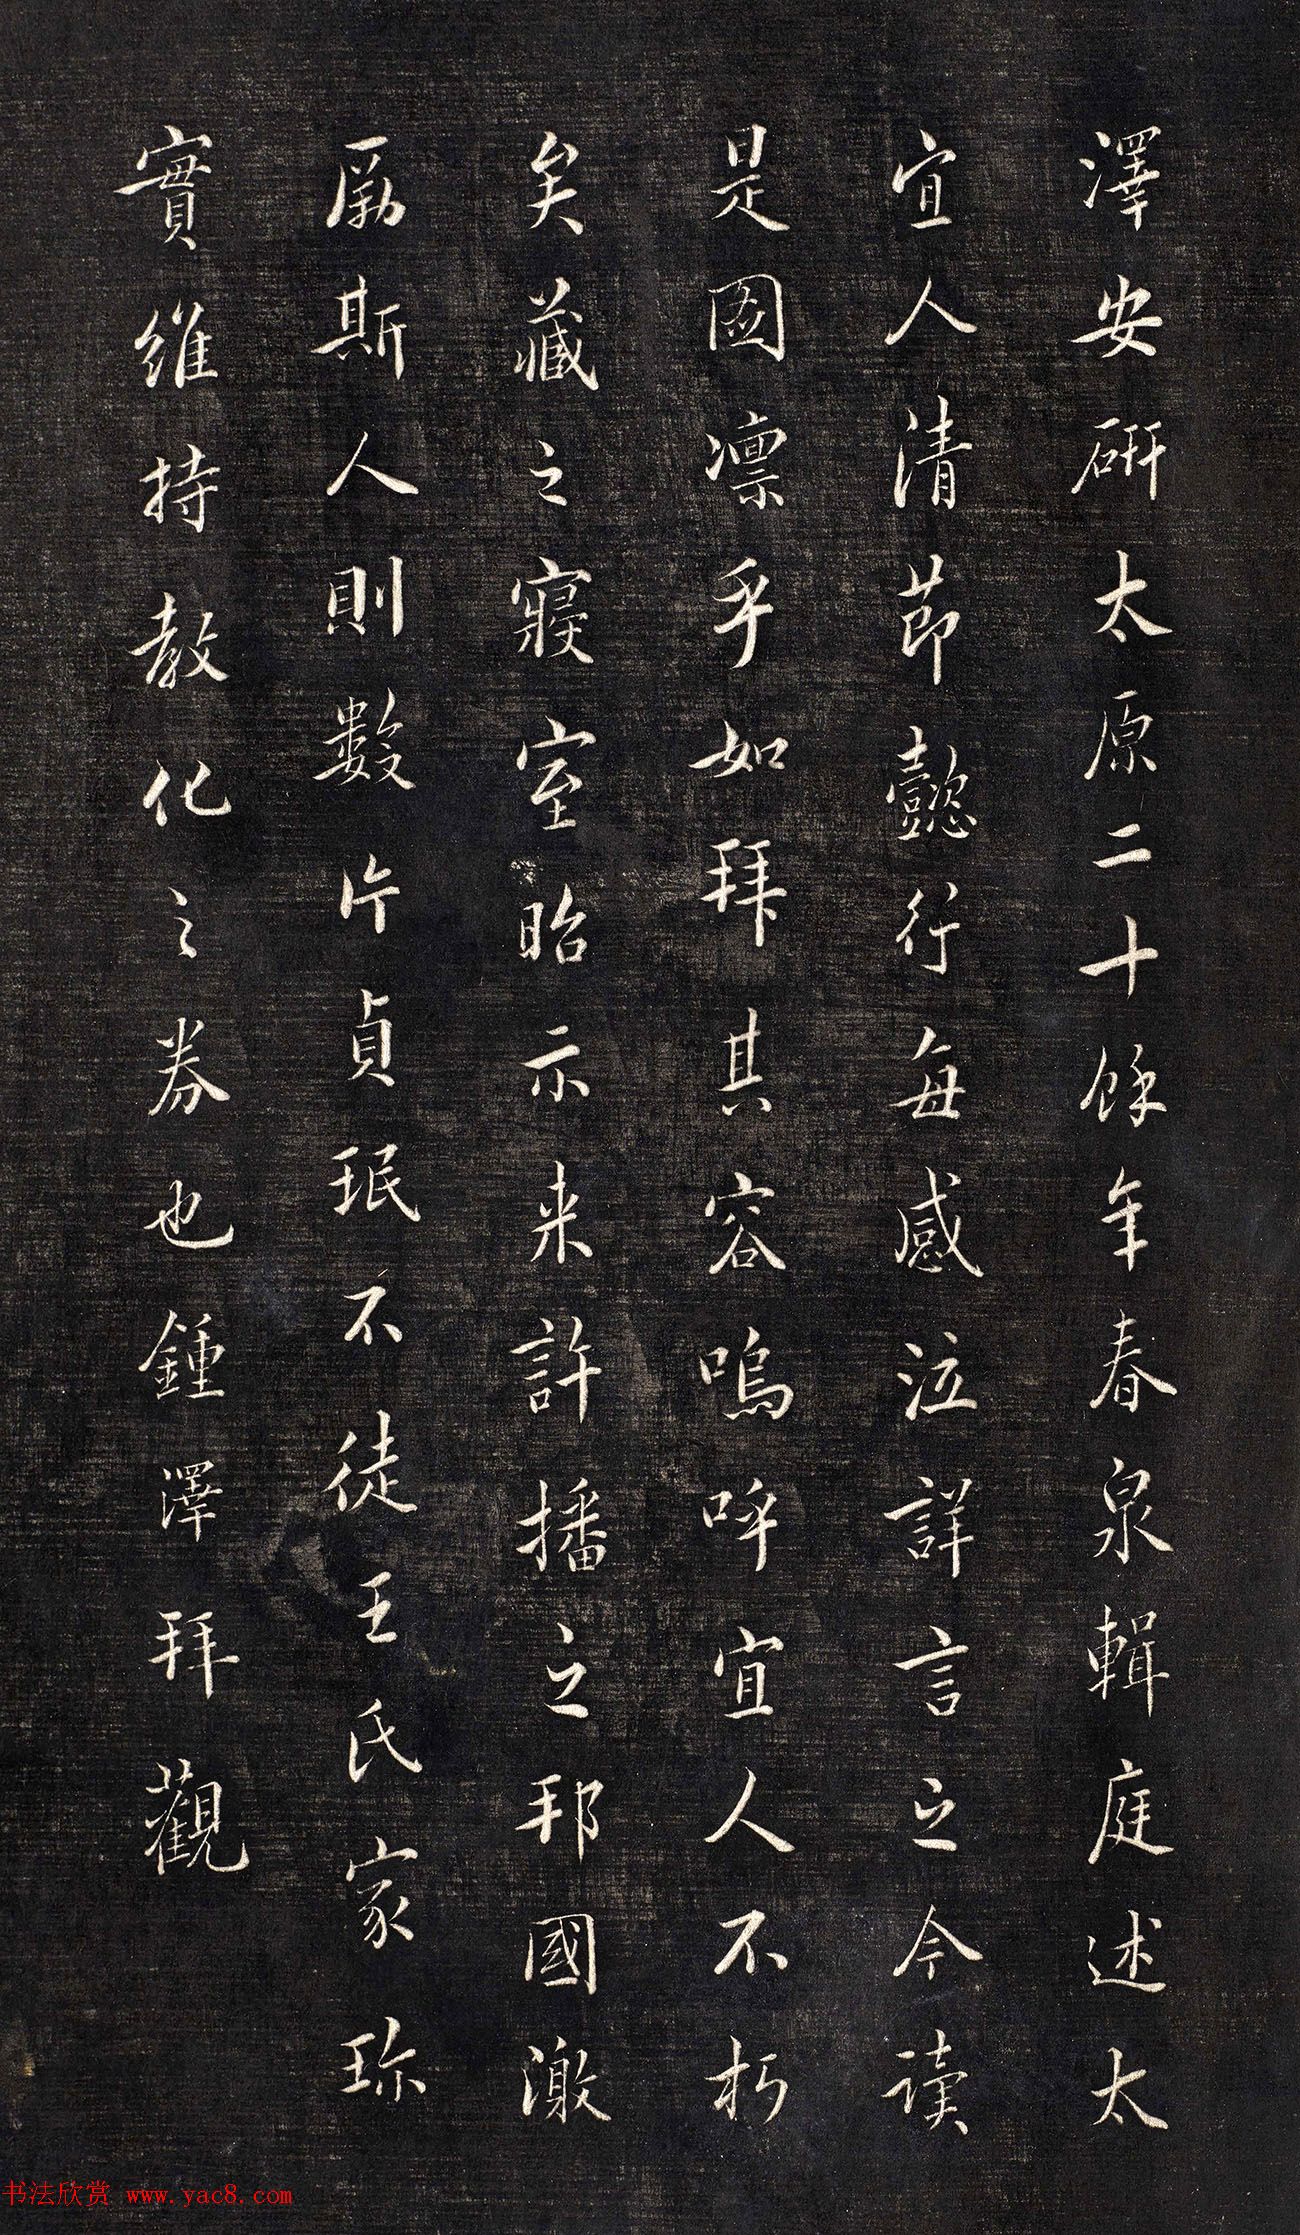 澤安研太原二十餘年春泉輯庭述太
宜人清節懿行每感泣詳言之今读
是圖凛乎如拜其容嗚呼宜人不朽
矣藏之寢室昭示来許播之邦國激
厲斯人則數片貞珉不徒王氏家珍
實維持教化之券也鍾澤拜觀
书法欣赏 www.yac8.com